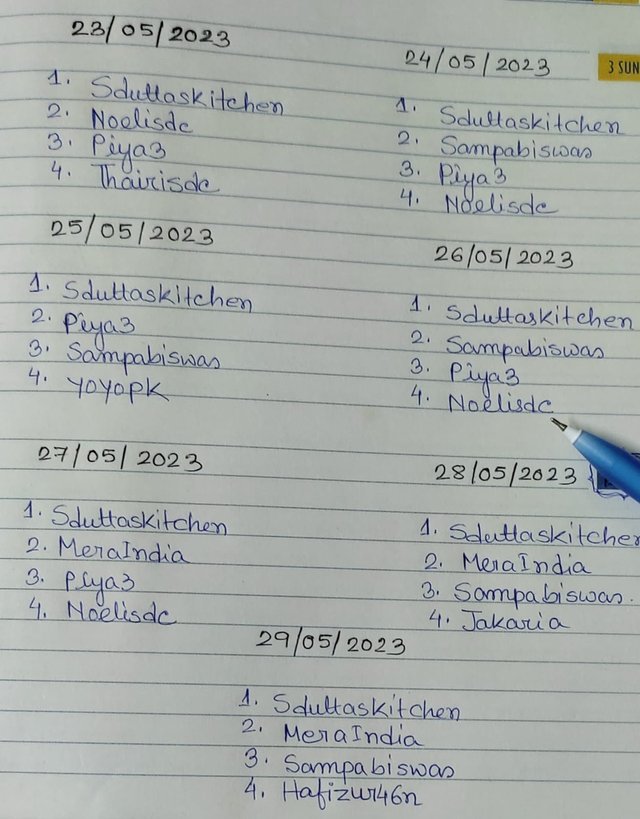 23/05/2023
1. Sduttaskitchen
2. Noelisdc
3. Piya3
4. Thairisdc
24/05/2023
3 SUN
1. Sduttaskitchen
2. Sampabiswas
3. Piya3
4. Noelisdc
25/05/2023
1. Sduttaskitchen
2. Piya3
3. Sampabiswas
4. YOYOPK
26/05/2023
1. Sduttaskitchen
2. Sampabiswas
3. Piya3
4. Noelisdc
27/05/2023
1. Sduttaskitchen
2. MeraIndia
3. Piya3
4. Noelisdc
28/05/2023
1. Sduttaskitchen
2. MeraIndia
3. Sampabiswas.
4. Jakaria
29/05/2023
1. Sduttaskitchen
2. MeraIndia
3. Sampabiswas
4. Hafizur46n